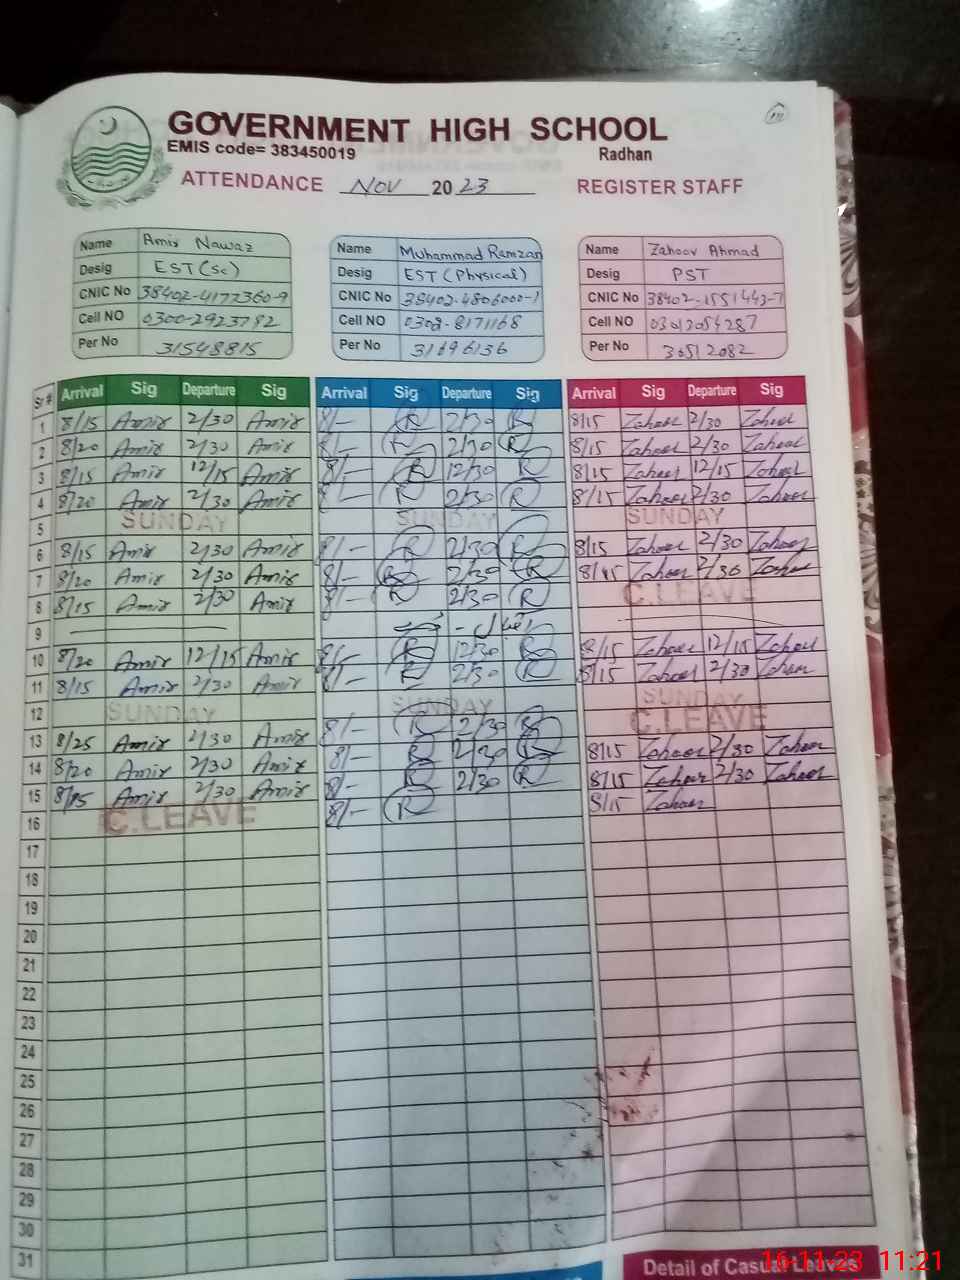 GOVERNMENT HIGH SCHOOL
EMIS code= 383450019 Radhan
ATTENDANCE Nov 2023 REGISTER STAFF
Name Amir Nawaz Name Muhammad Ramzan Name Zahoor Ahmad
Desig EST(Sc) Desig EST (Physical) Desig PST
CNIC No 38402-4177360-9 CNIC No 38402-4806000-1 CNIC No 38402-1551443-7
Cell NO 0300-2923782 Cell NO 0308-8171168 Cell NO 03012054287
Per No 31548815 Per No 31696136 Per No 30512082
Sr # Arrival Sig Departure Sig Arrival Sig Departure Sig Arrival Sig Departure Sig
1 8/15 Amir 2/30 Amir 8/- R 2/30 R 8/15 Zahoor 2/30 Zahoor
2 8/20 Amir 2/30 Amir 8/- R 2/30 R 8/15 Zahoor 2/30 Zahoor
3 8/15 Amir 12/15 Amir 8/- R 12/30 R 8/15 Zahoor 12/15 Zahoor
4 8/20 Amir 2/30 Amir 8/- R 2/30 R 8/15 Zahoor 2/30 Zahoor
5 SUNDAY SUNDAY SUNDAY
6 8/15 Amir 2/30 Amir 8/- R 2/30 R 8/15 Zahoor 2/30 Zahoor
7 8/20 Amir 2/30 Amir 8/- R 2/30 R 8/15 Zahoor 2/30 Zahoor
8 8/15 Amir 2/30 Amir 8/- R 2/30 R C.LEAVE
9
10 8/20 Amir 12/15 Amir 8/- R 12/30 R 8/15 Zahoor 12/15 Zahoor
11 8/15 Amir 2/30 Amir 8/- R 2/30 R 8/15 Zahoor 2/30 Zahoor
12 SUNDAY SUNDAY SUNDAY
13 8/25 Amir 2/30 Amir 8/- R 2/30 R C.LEAVE
14 8/20 Amir 2/30 Amir 8/- R 2/30 R 8/15 Zahoor 2/30 Zahoor
15 8/15 Amir 2/30 Amir 8/- R 2/30 R 8/15 Zahoor 2/30 Zahoor
16 C.LEAVE 8/- R 8/15 Zahoor
17
18
19
20
21
22
23
24
25
26
27
28
29
30
31
Detail of Casual Leaves
16-11-23 11:21